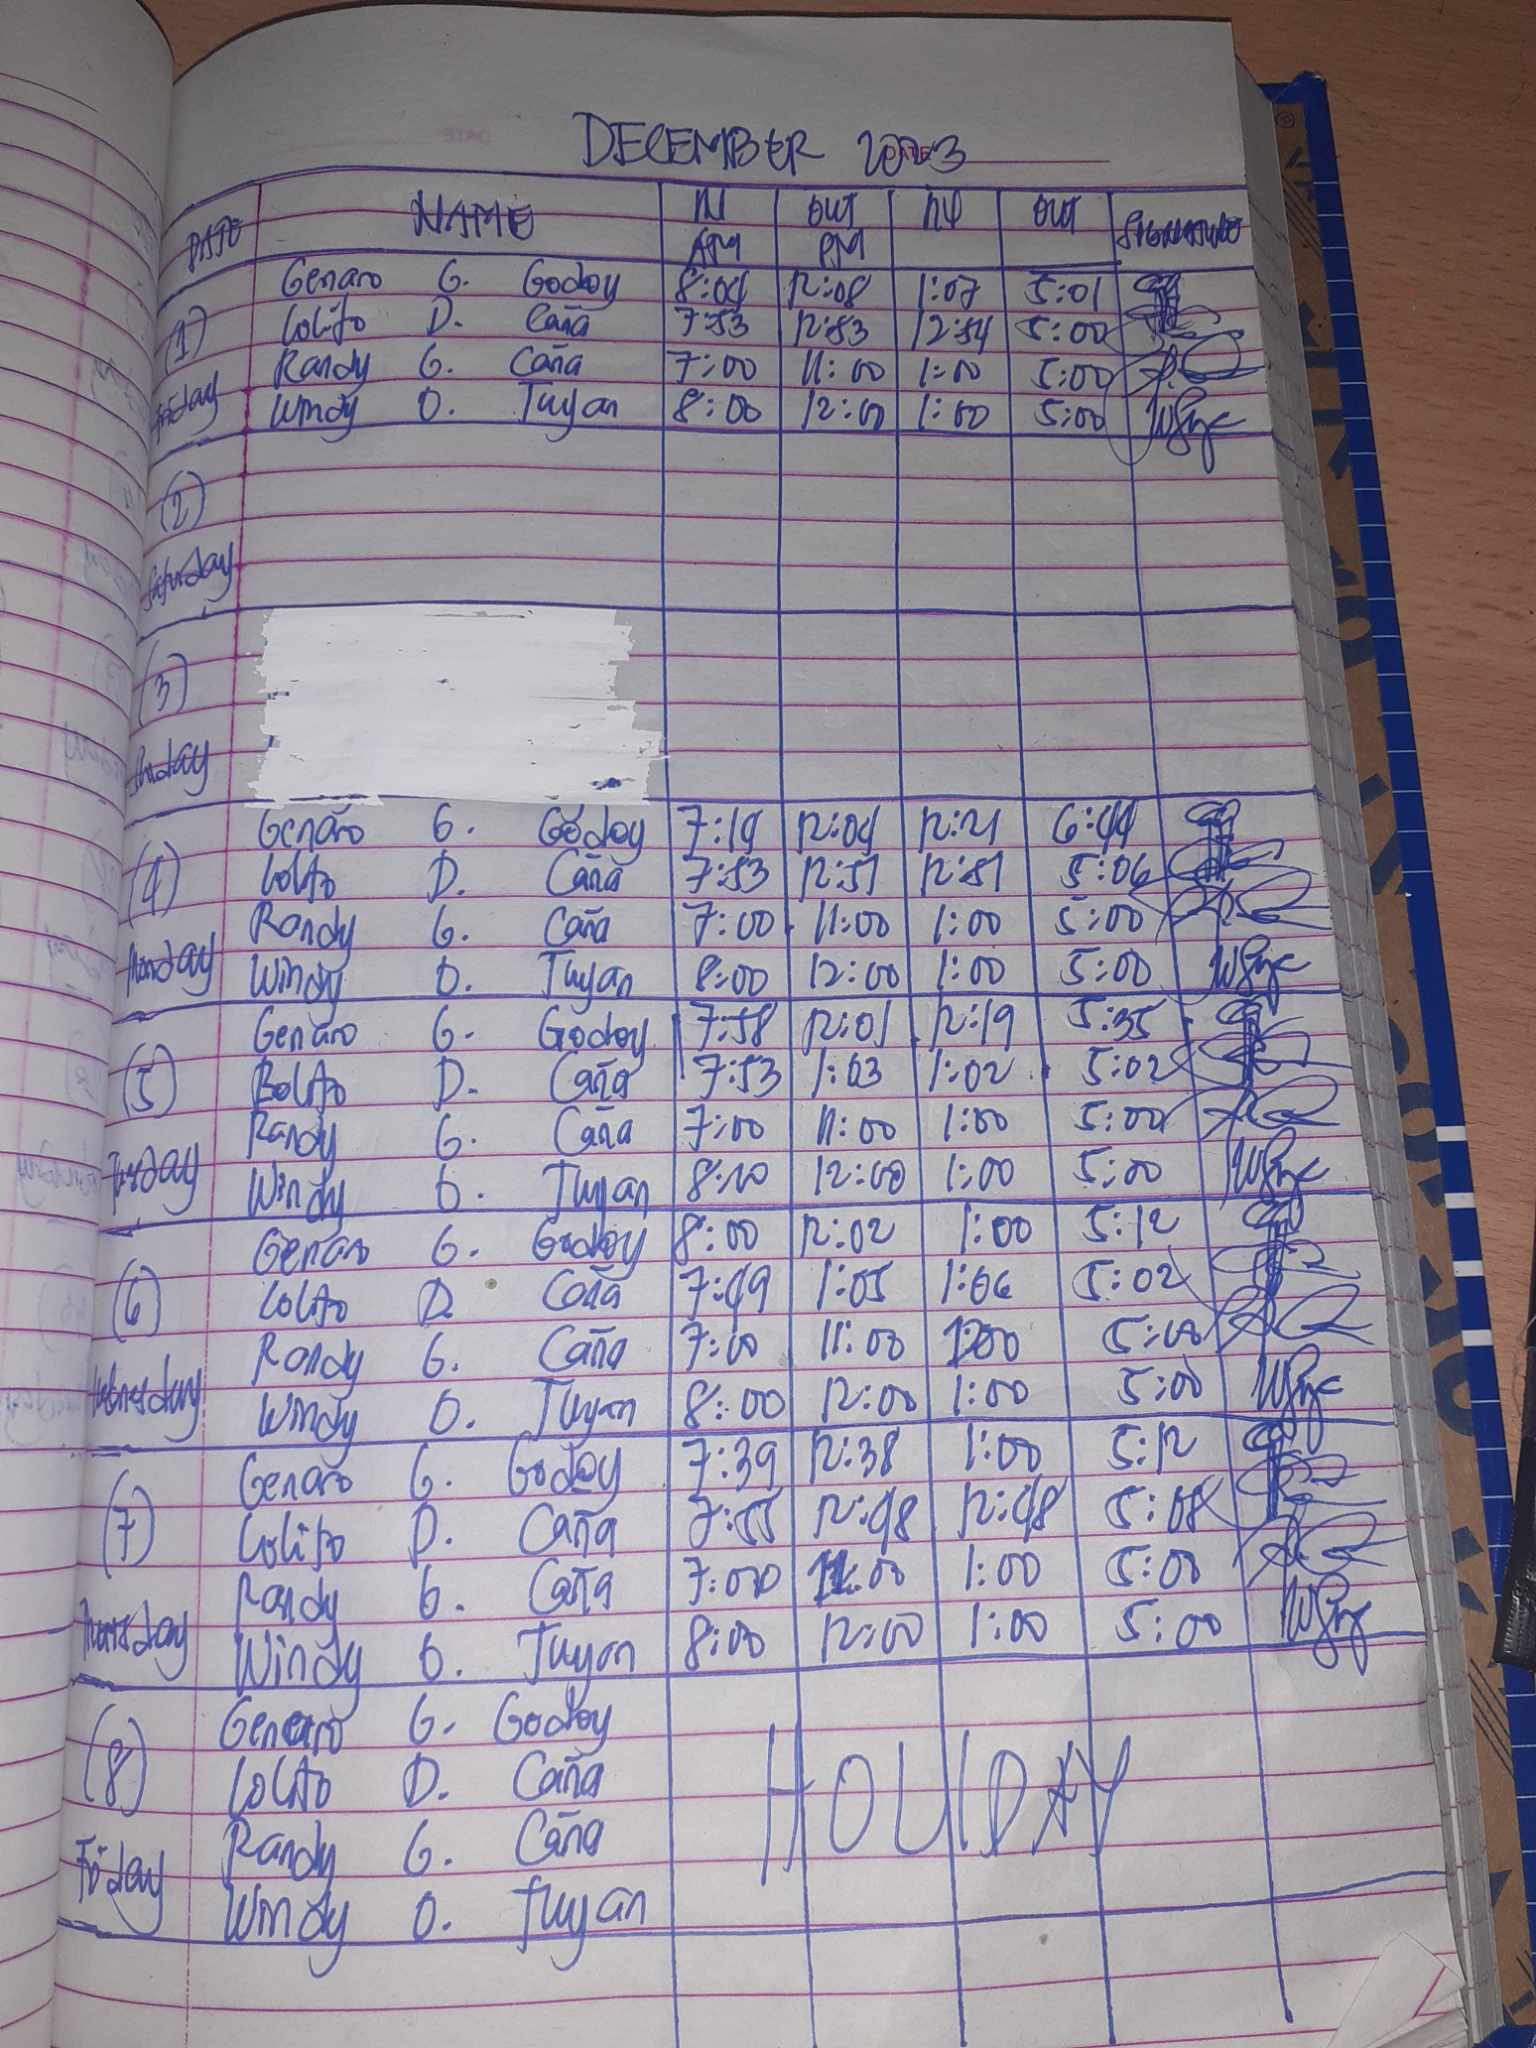 DECEMBER 2023
DATE NAME IN AM OUT PM IN OUT SIGNATURE
(1) Friday
Genaro G. Godoy 8:04 12:08 1:07 5:01
Lolito D. Caña 7:53 12:53 12:54 5:00
Randy G. Caña 7:00 11:00 1:00 5:00
Windy O. Tuyan 8:00 12:00 1:00 5:00
(2) Saturday
(3) Sunday
(4) Monday
Genaro G. Godoy 7:14 12:04 12:21 6:44
Lolito D. Caña 7:53 12:51 12:51 5:06
Randy G. Caña 7:00 11:00 1:00 5:00
Windy O. Tuyan 8:00 12:00 1:00 5:00
(5) Tuesday
Genaro G. Godoy 7:58 12:01 12:19 5:35
Lolito D. Caña 7:53 1:03 1:02 5:02
Randy G. Caña 7:00 11:00 1:00 5:00
Windy O. Tuyan 8:00 12:00 1:00 5:00
(6) Wednesday
Genaro G. Godoy 8:00 12:02 1:00 5:12
Lolito D. Caña 7:49 1:05 1:06 5:02
Randy G. Caña 7:00 11:00 1:00 5:00
Windy O. Tuyan 8:00 12:00 1:00 5:00
(7) Thursday
Genaro G. Godoy 7:39 12:38 1:00 5:12
Lolito D. Caña 7:55 12:48 12:48 5:08
Randy G. Caña 7:00 11:00 1:00 5:00
Windy O. Tuyan 8:00 12:00 1:00 5:00
(8) Friday
Genaro G. Godoy
Lolito D. Caña
HOLIDAY
Randy G. Caña
Windy O. Tuyan